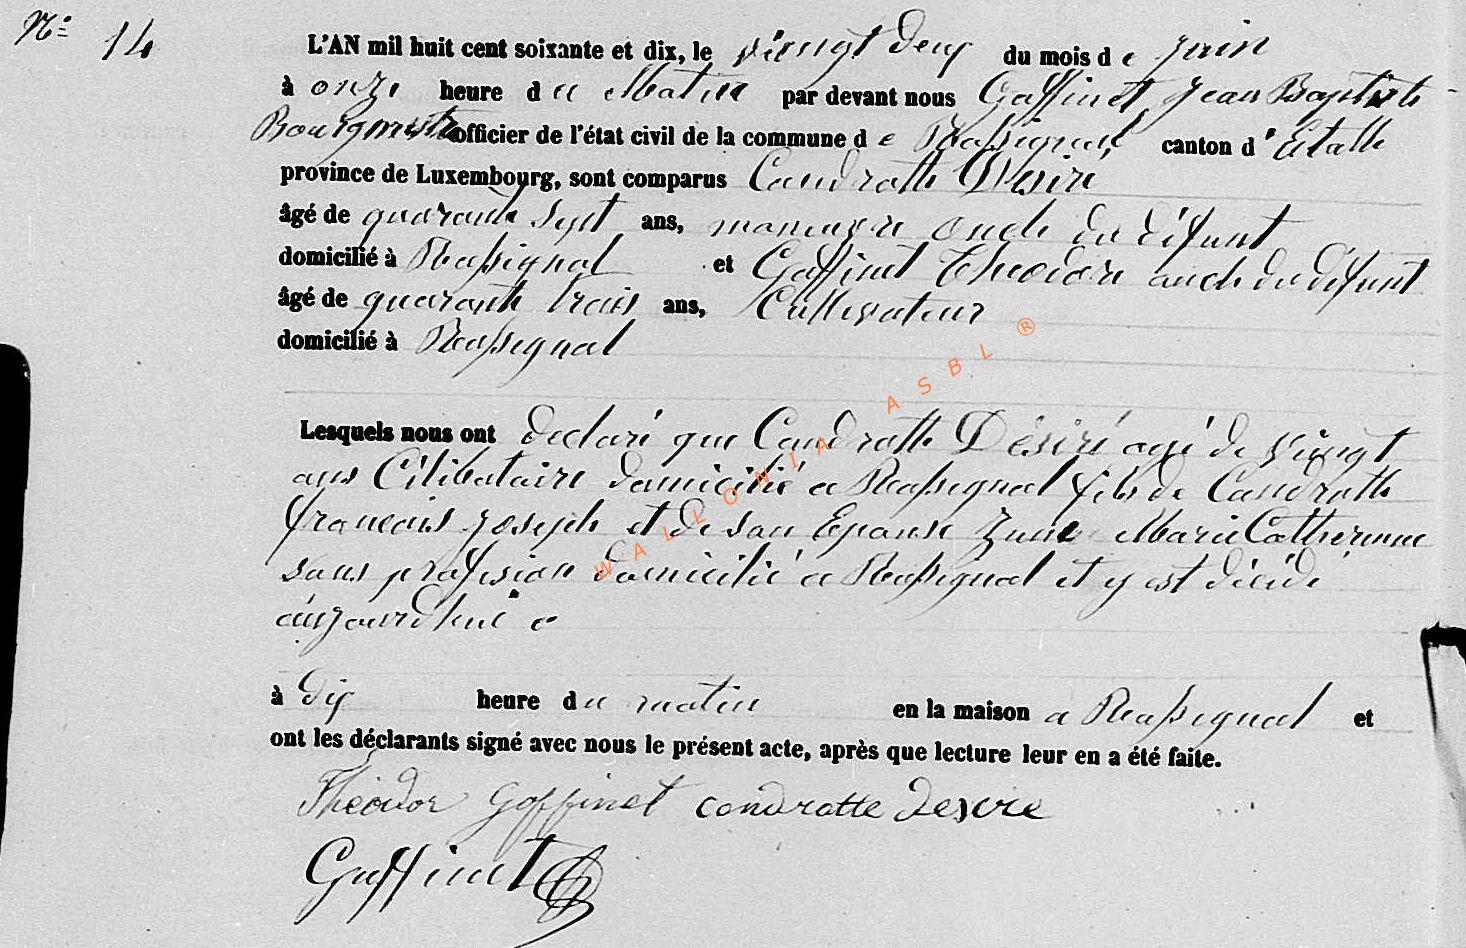 N° 14
L'AN mil huit cent soixante et dix, le viengt deux du mois de juin
à onze heure du Matin par devant nous Goffinet Jean Baptiste
Bourgmestre officier de l'état civil de la commune de Rossignol canton d'Etalle
province de Luxembourg, sont comparus Condrotte Desiré
âgé de quarante sept ans, maneuvre oncle du défunt
domicilié à Rossignol et Goffinet Théodore oncle du défunt
âgé de quarante trois ans, Cultivateur
domicilié à Rossignol
Lesquels nous ont déclaré que Condrotte Désiré agé de viengt
ans Célibataire domicilié a Rossignol fils de Condrotte
françois joseph et de son Epouse Zune Marie Catherinne
sans profession domicilié a Rossignol et y est décédé
aujourd'hui a
à dix heure du matin en la maison a Rossignol et
ont les déclarants signé avec nous le présent acte, après que lecture leur en a été faite.
Théodor Goffinet condrotte desire
Goffinet
WALLONIA ASBL ®